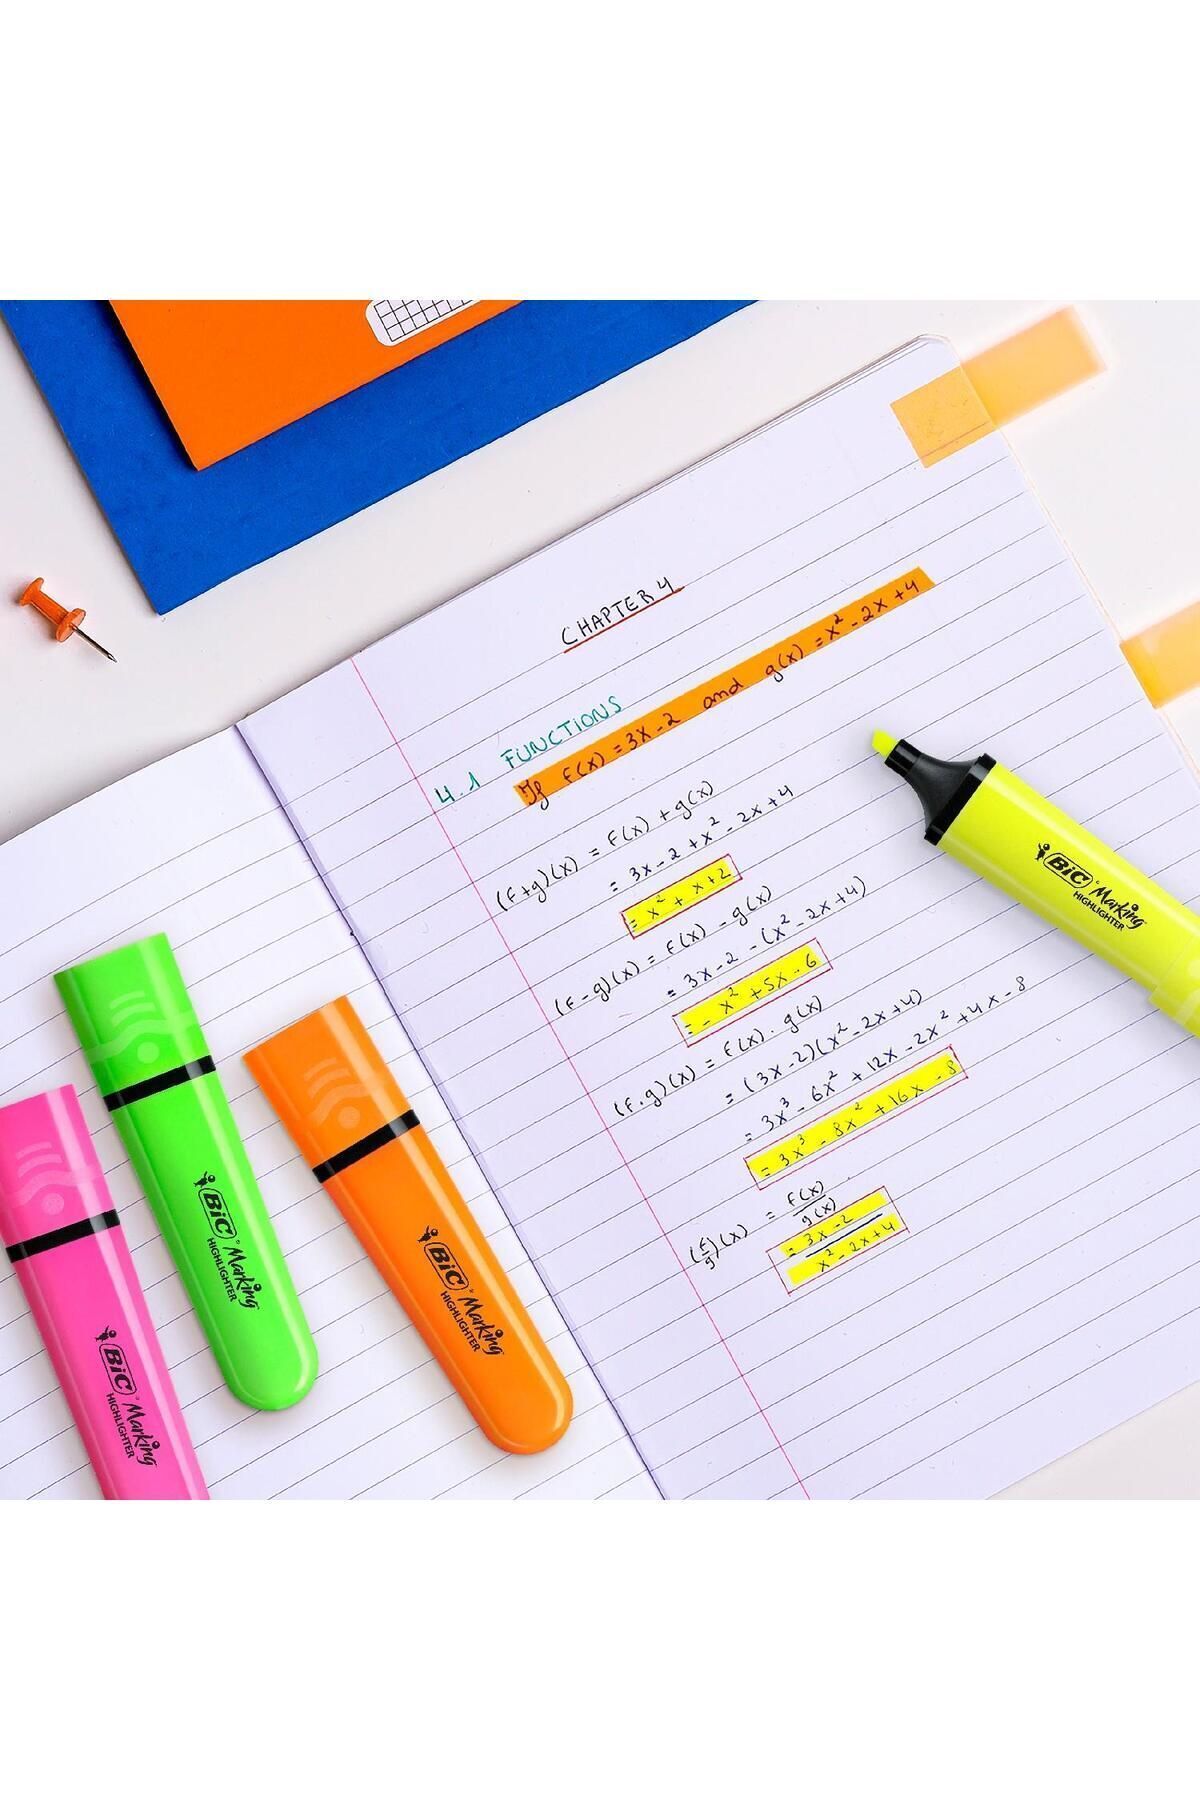 CHAPTER 4
4.1 FUNCTIONS
If f(x) = 3x - 2 and g(x) = x² - 2x + 4
(f+g)(x) = f(x) + g(x)
= 3x - 2 + x² - 2x + 4
= x² + x + 2
(f-g)(x) = f(x) - g(x)
= 3x - 2 - (x² - 2x + 4)
= - x² + 5x - 6
(f.g)(x) = f(x) . g(x)
= (3x - 2)(x² - 2x + 4)
= 3x³ - 6x² + 12x - 2x² + 4x - 8
= 3x³ - 8x² + 16x - 8
(f/g)(x) = f(x)/g(x)
= 3x - 2 / x² - 2x + 4
BiC Marking
HIGHLIGHTER
BiC Marking
HIGHLIGHTER
BiC Marking
HIGHLIGHTER
BiC Marking
HIGHLIGHTER